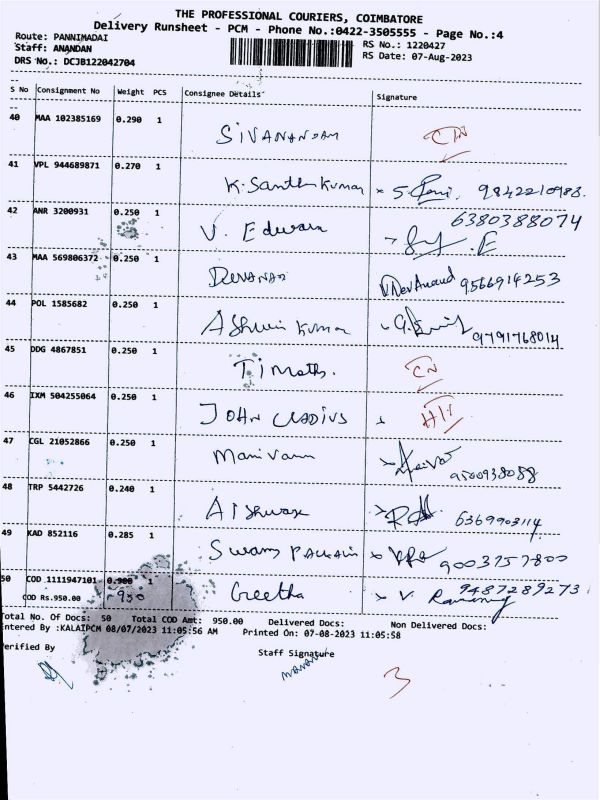 THE PROFESSIONAL COURIERS, COIMBATORE
Delivery Runsheet - PCM - Phone No.:0422-3505555 - Page No.:4
Route: PANNIMADAI RS No.: 1220427
Staff: ANANDAN RS Date: 07-Aug-2023
DRS No.: DCJB122042704
S No Consignment No Weight PCS Consignee Details Signature
40 MAA 102385169 0.290 1 SIVANANDAM
41 VPL 944689871 0.270 1 K. Santh Kumar 9842210988
42 ANR 3200931 0.250 1 V. Edwara 6380388074
43 MAA 569806372 0.250 1 DEVANAD V Dev Anand 9566914253
44 POL 1585682 0.250 1 Ashwin Kumar 9791768014
45 DDG 4867851 0.250 1 Timoths. CN
46 IXM 504255064 0.250 1 JOHN CLADIUS
47 CGL 21052866 0.250 1 Manivann 9500938088
48 TRP 5442726 0.240 1 AIShwar 6369903114
49 KAD 852116 0.285 1 Swamy 9003757800
50 COD 1111947101 0.900 1 Geetha 9487289273
COD Rs.950.00 950
Total No. Of Docs: 50 Total COD Amt: 950.00 Delivered Docs: Non Delivered Docs:
Entered By :KALAIPCM 08/07/2023 11:05:56 AM Printed On: 07-08-2023 11:05:58
Verified By Staff Signature
3